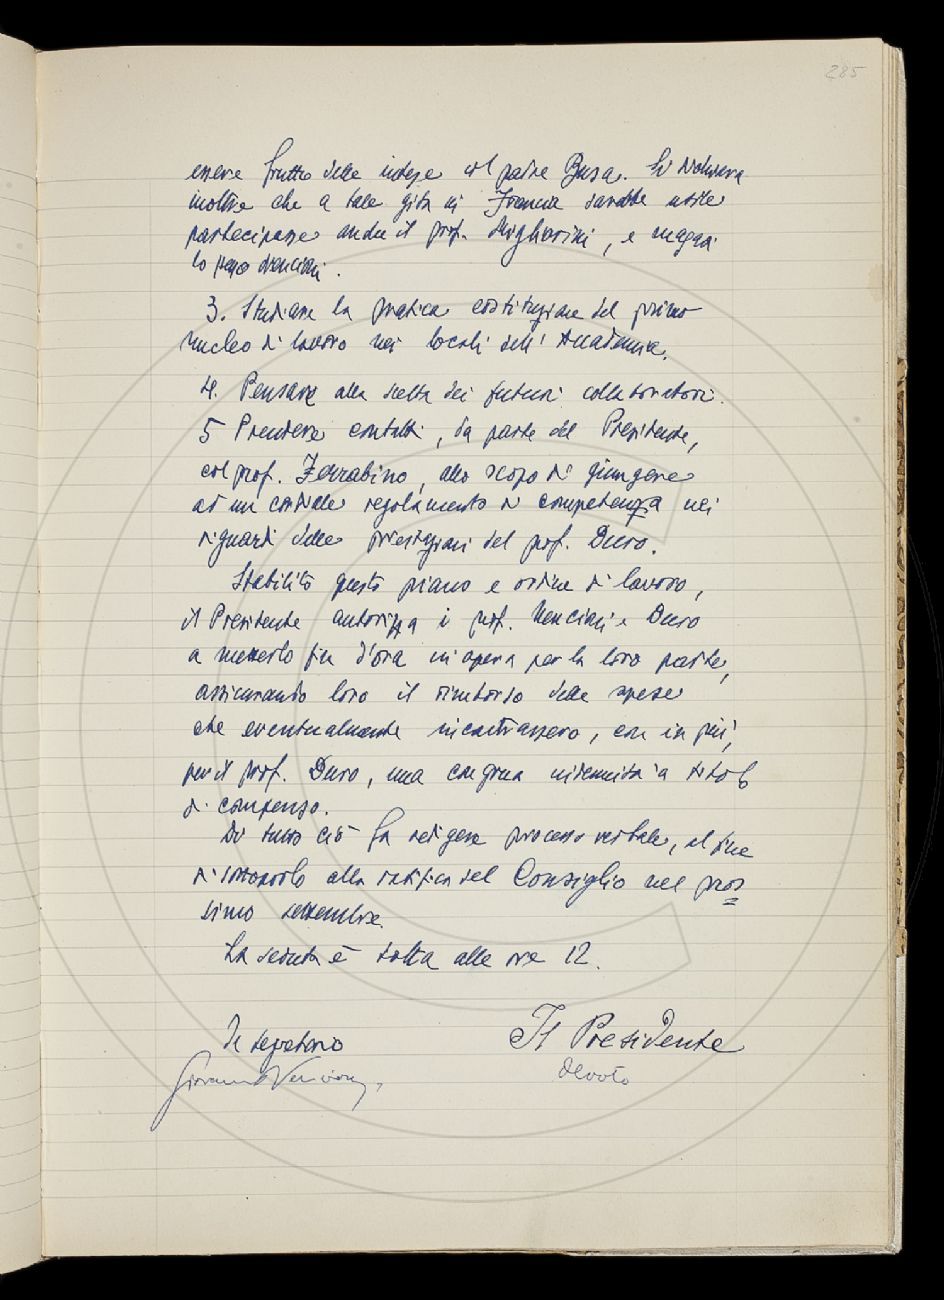 285
essere frutto delle intese col padre Busa. Si dichiara
inoltre che a tale gita in Francia sarebbe utile
partecipasse anche il prof. Migliorini, e magari
lo stesso Nencioni.
3. Studiare la pratica costituzione del primo
nucleo di lavoro nei locali dell'Accademia.
4. Pensare alla scelta dei futuri collaboratori.
5 Prendere contatti, da parte del Presidente,
col prof. Ferrabino, allo scopo di giungere
ad un cordiale regolamento di competenza nei
riguardi delle prestazioni del prof. Duro.
Stabilito questo piano e ordine di lavoro,
il Presidente autorizza i prof. Nencioni e Duro
a metterlo fin d'ora in opera per la loro parte,
assicurando loro il rimborso delle spese
che eventualmente incontrassero, con in più,
per il prof. Duro, una congrua indennità a titolo
di compenso.
Di tutto ciò fa redigere processo verbale, al fine
di sottoporlo alla ratifica del Consiglio nel pros=
simo settembre.
La seduta è tolta alle ore 12.
Il segretario Il Presidente
Giovanni Nencioni Devoto